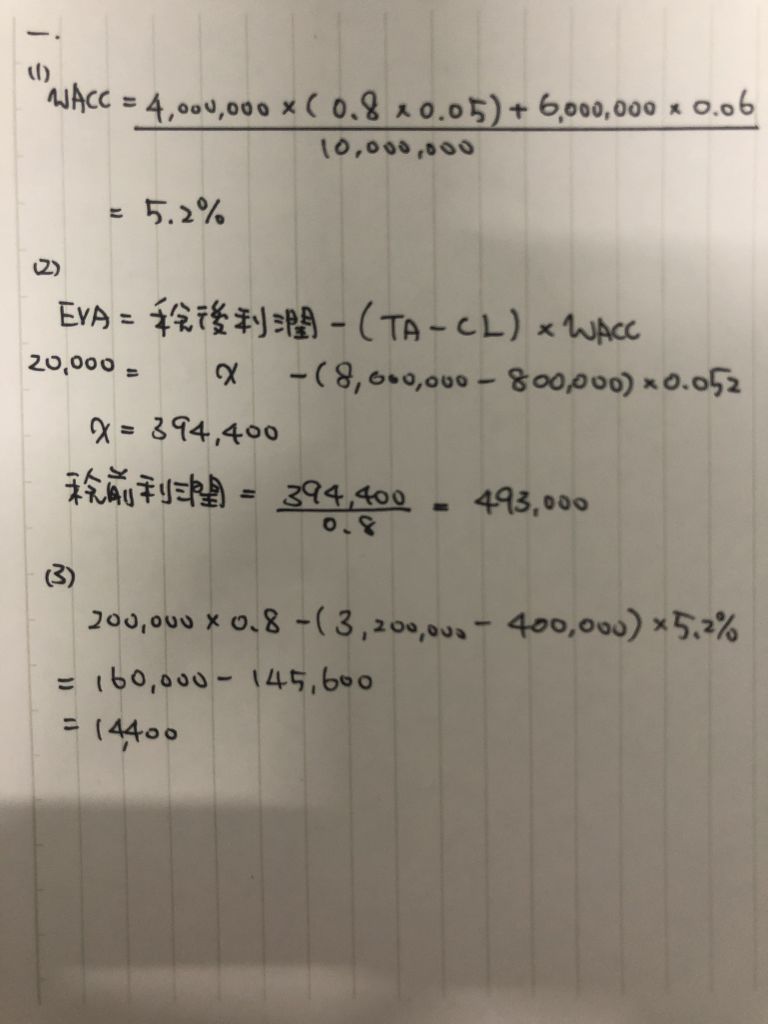 一.
(1)
WACC = 4,000,000 × ( 0.8 × 0.05) + 6,000,000 × 0.06
10,000,000
= 5.2%
(2)
EVA = 稅後利潤 - (TA - CL) × WACC
20,000 = x - (8,000,000 - 800,000) × 0.052
x = 394,400
稅前利潤 = 394,400 / 0.8 = 493,000
(3)
200,000 × 0.8 - (3,200,000 - 400,000) × 5.2%
= 160,000 - 145,600
= 14,400